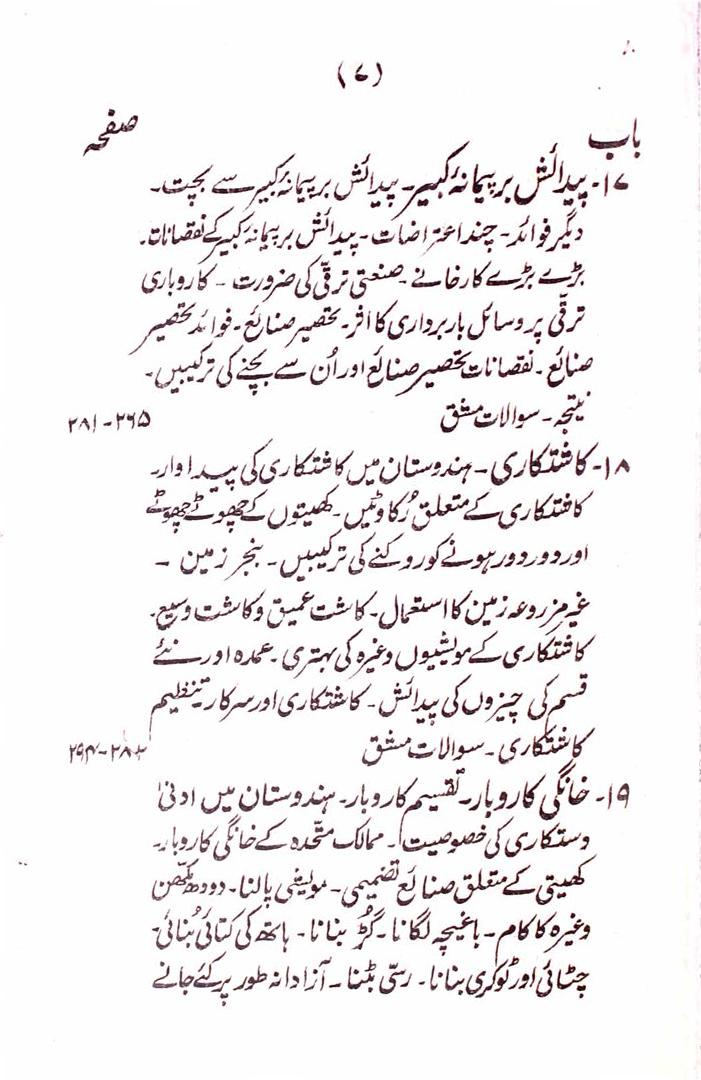 (۷)
باب
صفحہ
۱۷- پیدائش بر پیمانۂ کبیر۔ پیدائش بر پیمانۂ کبیر سے بچت۔
دیگر فوائد۔ چند اعتراضات۔ پیدائش بر پیمانۂ کبیر کے نقصانات۔
بڑے بڑے کارخانے۔ صنعتی ترقی کی ضرورت۔ کاروباری
ترقّی پر وسائل باربرداری کا اثر۔ تحصیر صنائع۔ فوائد تحصیر
صنائع۔ نقصانات تحصیر صنائع اور اُن سے بچنے کی ترکیبیں۔
نتیجہ۔ سوالات مشق
۲۶۵-۲۸۱
۱۸- کاشتکاری۔ ہندوستان میں کاشتکاری کی پیداوار۔
کاشتکاری کے متعلق رُکاوٹیں۔ کھیتوں کے چھوٹے چھوٹے
اور دور دور ہونے کو روکنے کی ترکیبیں۔ بنجر زمین۔
غیر مزروعہ زمین کا استعمال۔ کاشت عمیق و کاشت وسیع۔
کاشتکاری کے مویشیوں وغیرہ کی بہتری۔ عمدہ اور نئے
قسم کی چیزوں کی پیدائش۔ کاشتکاری اور سرکار۔ تنظیم
کاشتکاری۔ سوالات مشق
۲۸۲-۲۹۴
۱۹- خانگی کاروبار۔ تقسیم کاروبار۔ ہندوستان میں ادنیٰ
دستکاری کی خصوصیت۔ ممالک متّحدہ کے خانگی کاروبار۔
کھیتی کے متعلق صنائع تضمیمی۔ مویشی پالنا۔ دودھ مکّھن
وغیرہ کا کام۔ باغیچہ لگانا۔ گُڑ بنانا۔ ہاتھ کی کتائی بُنائی۔
چٹائی اور ٹوکری بنانا۔ رسّی بٹنا۔ آزادانہ طور پر کئے جانے